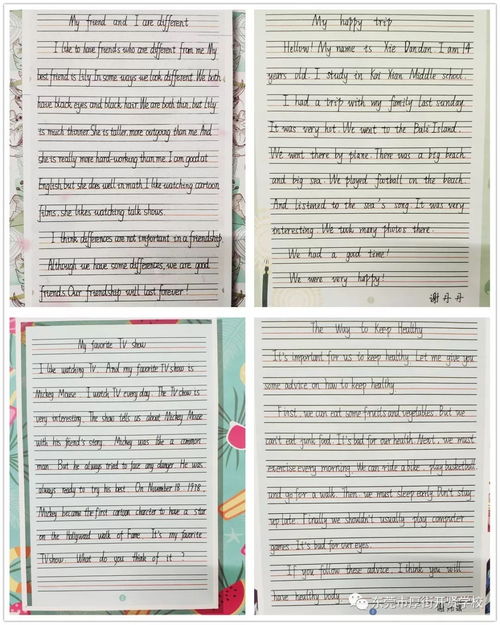 My friend and I are different
I like to have friends who are different from me. My
best friend is Lily. In some ways we look different. We both
have black eyes and black hair. We are both thin, but Lily
is much thinner. She is taller, more outgoing than me. And
she is really more hard-working than me. I am good at
English, but she does well in math. I like watching cartoon
films, she likes watching talk shows.
I think differences are not important in a friendship.
Although we have some differences, we are good
friends. Our friendship will last forever!
My happy trip
Hellow! My name is Xie Dandan. I am 14
years old. I study in Kai Xian Middle school.
I had a trip with my family last sunday.
It was very hot. We went to the Bali Island.
We went there by plane. There was a big beach
and big sea. We played football on the beach.
And listened to the sea's song. It was very
interesting. We took many photos there.
We had a good time!
We were very happy!
谢丹丹
My favorite TV show
I like watching TV. And my favorite TV show is
Mickey Mouse. I watch TV every day. The TV show is
very interesting. The show tells us about Mickey Mouse
with his friend's story. Mickey was like a common
man. But he always tried to face any danger. He was
always ready to try his best. On November 18 1978,
Mickey became the first cartoon charcter to have a star
on the Hollywood walk of Fame. It's my favorite
TV show. What do you think of it?
The Way to Keep Healthy
It's important for us to keep healthy. Let me give you
some advice on how to keep healthy.
First, we can eat some fruits and vegetables. But we
can't eat junk food. It's bad for our health. Next, we must
exercise every morning. We can ride a bike, play basketball
and go for a walk. Then, we must sleep early. Don't stay
up late. Finally we shouldn't usually play computer
games. It's bad for our eyes.
If you follow these advice. I think you will
have healthy body.
东莞市厚街开贤学校